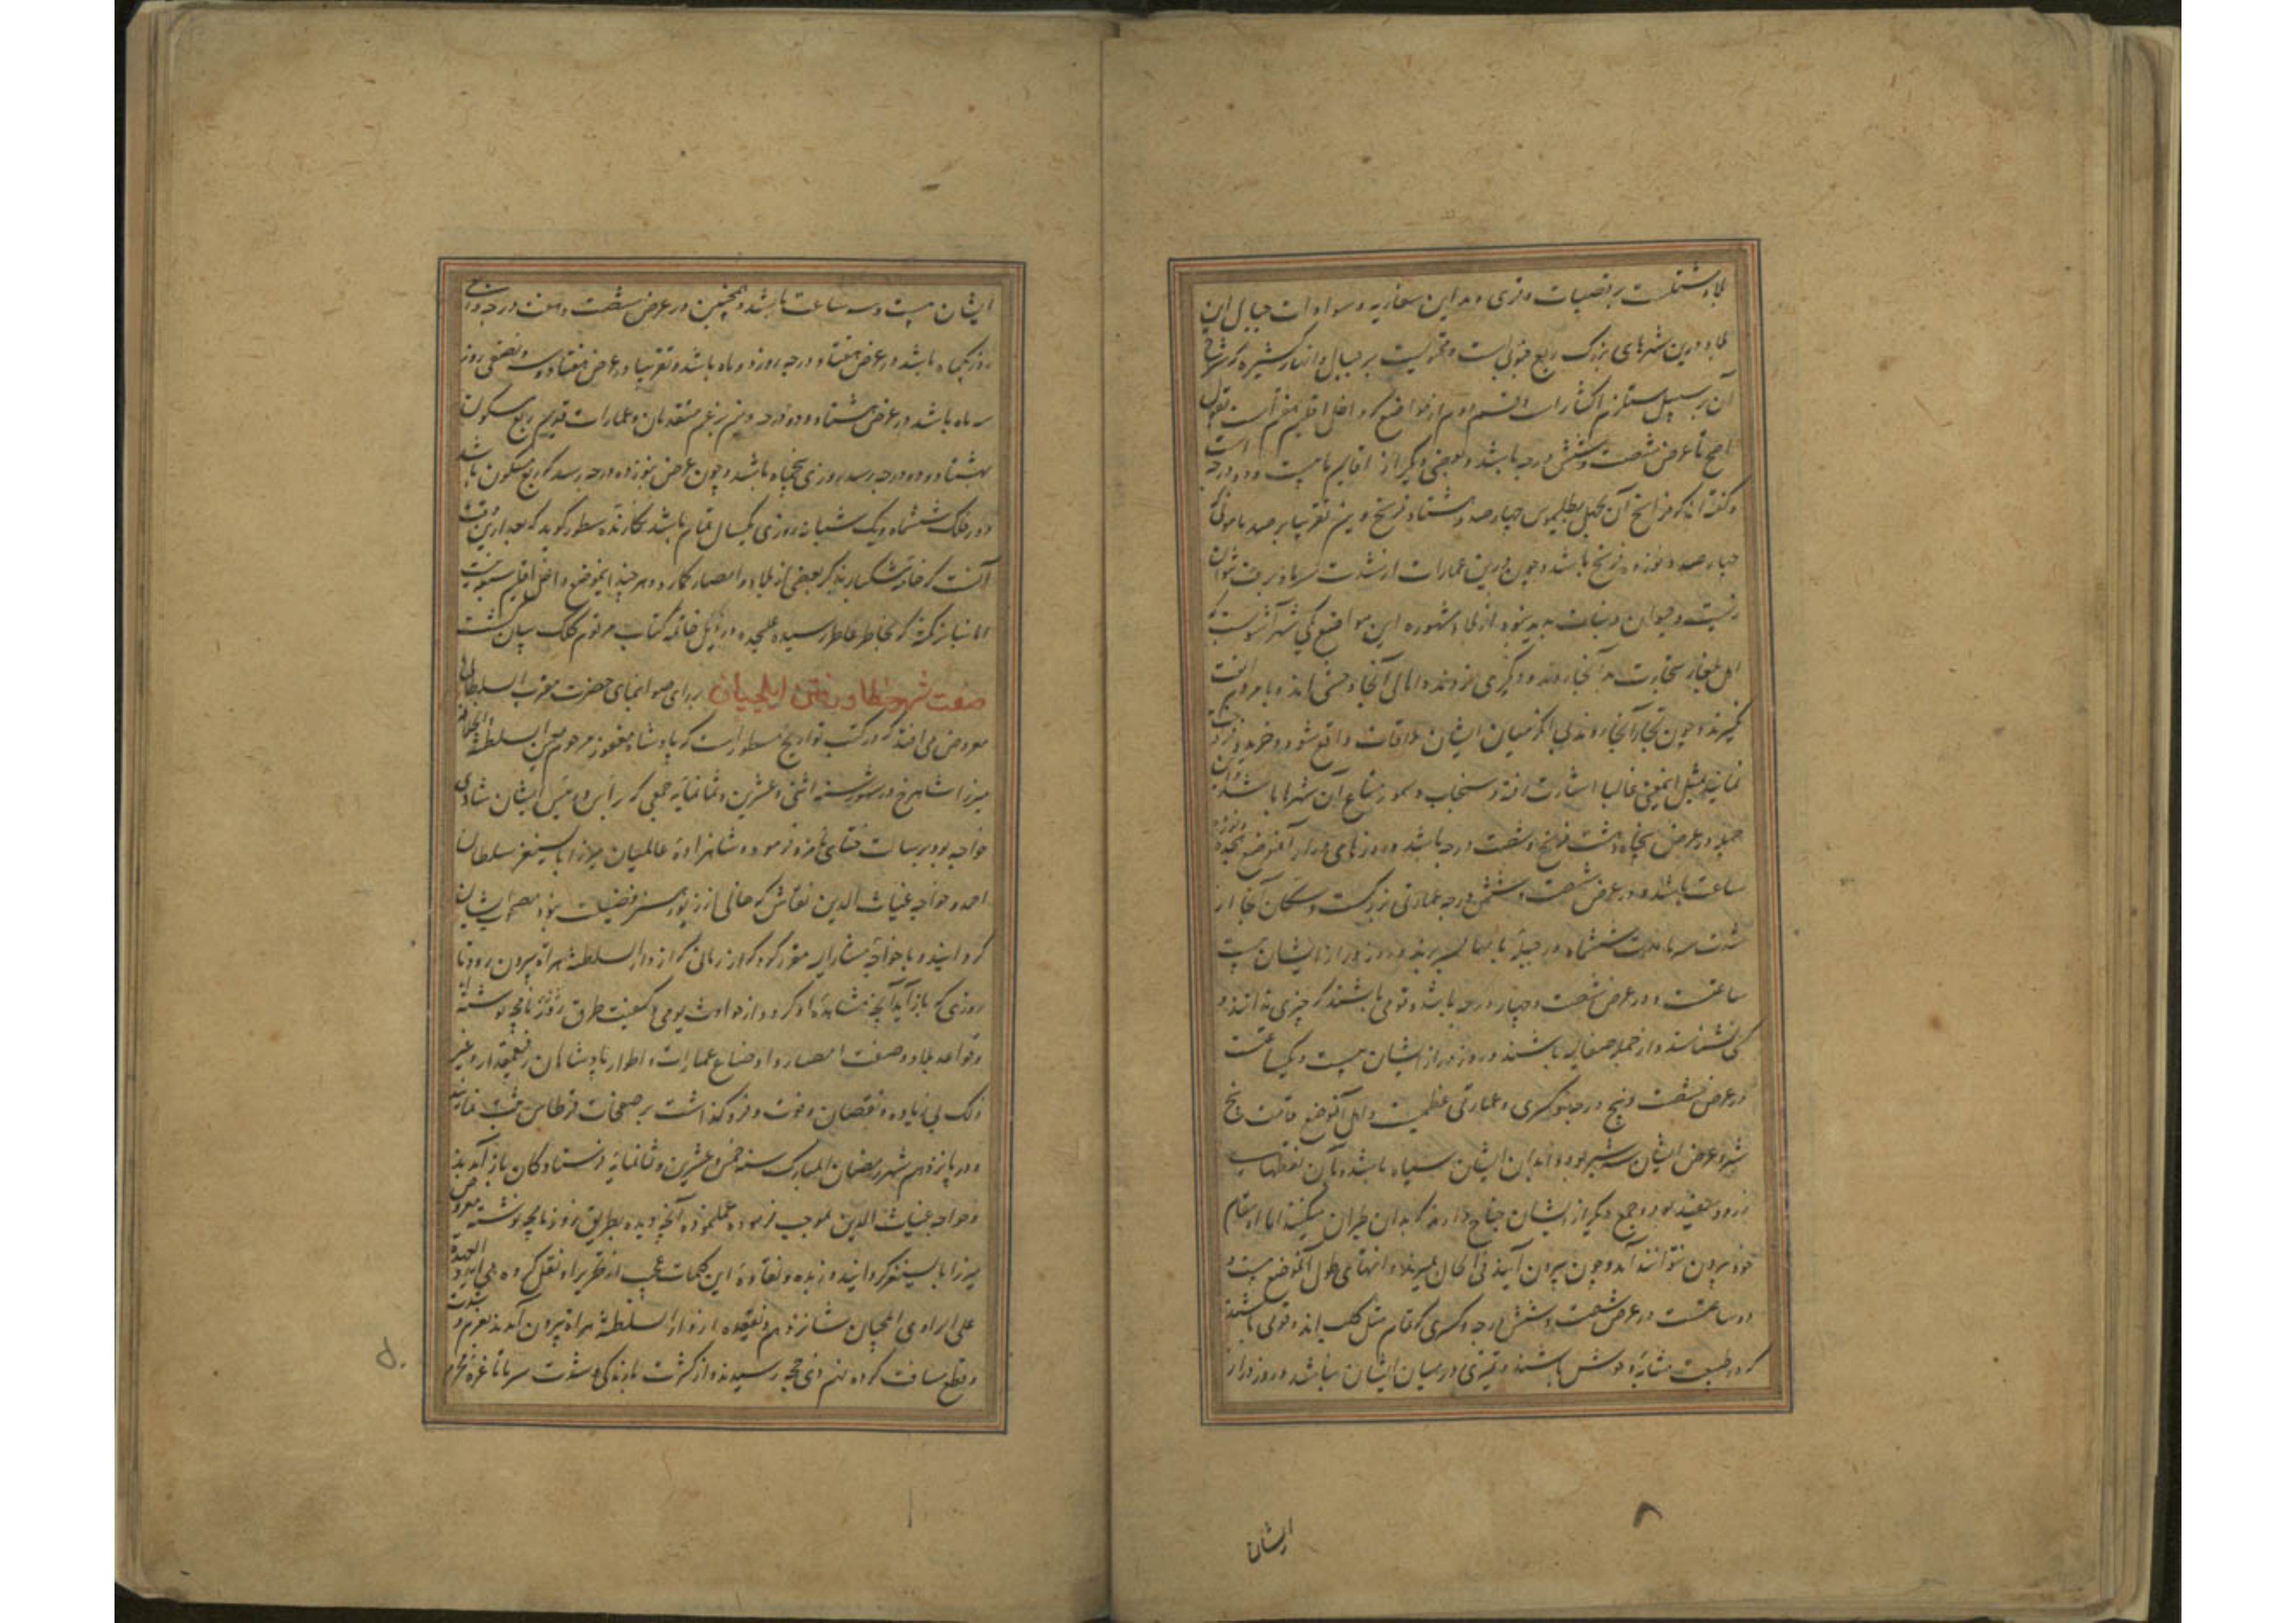 بلاد مشتملست بر قصبات و قری و مداین سقاریه و سوادات جبال این
بلاد و درین شهرهای بزرگ ربع جنوبی است و محتویست بر جبال و انهار کثیره که شرح
آن بر سبیل مستلزم اکثارات القسم دوم از مواضع که داخل اقلیم هفتم است بقول
اصح تا عرض شصت و شش درجه باشد و بعضی دیگر از اقالیم تا بیست و دو درجه است
و گفته‌اند که فراسخ آن بقول بطلمیوس چهار صد و هشتاد فرسخ و بین تقریبا بر صد مامونی
چهار صد و نوزده فرسخ باشد و چون درین عمارات از شدت سرما و برف نتوان
زیست و حیوان و نبات به بدینود از بلاد مشهوره این مواضع یکی شهر
اهل بلغار بتجارت به آنجا روند و دیگری نروند و اهالی آنجا وحشی‌اند و با مردم الفت
نگیرند و چون تجار آنجا روند بی آنکه میان ایشان ملاقات واقع شود و خرید و فروخت
نمایند بمثل اینمعنی غالبا اشارت افتد و سنجاب و سمور متاع آن شهرها باشد و این
جمله در عرض پنجاه و هشت و پنج و شصت درجه باشد و روزهای دراز آنموضع هجده و نوزده
ساعت باشد و در عرض شصت و شش درجه عمارتی بزرگست و سکان آنجا از
شدت سرما مدت ششماه در حمامها بسر برند و روز دراز ایشان بیست
ساعتست و در عرض شصت و چهار درجه باشد و قومی باشند که چیزی ندانند و
کسی نشناسند و از جمله صقالبه باشند و روز دراز ایشان بیست و یکساعتست
در عرض شصت و پنج درجه و کسری و عمارتی عظیمست و اهل آنموضع قامت پنج
شبر و عرض ایشان سه شبر بود و ابدان ایشان سیاه باشد و بآن نقطهای
زرد و سفید بود و جمع دیگر از ایشان جناح دارند که بدان طیران میکنند اما از مقام
خود بیرون نتوانند آمد و چون بیرون آیند فی الحال بمیرند و انتهای طول آنموضع بیست و
دو ساعتست در عرض شصت و شش درجه و کسری که قام مثل کلب‌اند و قومی باشند
که در طبیعت مشابه وحوش باشند و تمیزی در میان ایشان نباشد و روز دراز
ایشان
۸
ایشان بیست و سه ساعت باشد و همچنین در عرض شصت و هفت درجه
روز یکماه باشد در عرض هفتاد درجه روز دو ماه باشد و تقریبا در عرض هفتاد و سه و نصفی روز
سه ماه باشد در عرض هشتاد و دو درجه و نیز برغم متقدمان و عمارات قدیم ربع مسکون
بهشتاد و دو درجه رسد روزی پنجماه باشد و چون عرض بنوزده درجه رسد که ربع مسکون باشد
دور فلک ششماه و یک شبانه روزی یکسال تمام باشد نگارنده سطور گوید که بعد ازین وقت
آنست که خامه مشکبار بذکر بعضی از بلاد و امصار نگارد و هر چند اینموضع داخل اقلیم سبعه نیست
اما بنا بر نکته که بخاطر فاطر رسیده علیحده در ذیل خاتمه کتاب مرقوم کلک بیان گشت
صفت شهر خطا و رفتن ایلچیان برای صوابنمای حضرت مقرب السلطانی
معروض می افتد که در کتب تواریخ مسطور است که پادشاه مغفور مرحوم معین السلطنة و الخلافة
میرزا شاهرخ در شهور سنه اثنی و عشرین و ثمانمایه جمعی که رأس و رئیس ایشان شادی
خواجه بود برسالت ختای نامزد فرمود و شاهزاده عالمیان میرزا بایسنغر سلطان
احمد و خواجه غیاث الدین نقاش که خالی از زیور هنر و فضیلت نبود مصحوب ایشان
گردانید و با خواجه مشارالیه مقرر کرد که از زمانی که از دار السلطنة هراة بیرون رود تا
روزی که باز آید آنچه مشاهده او گردد از حوادث یومی و کیفیت طرق روزنامچه نوشته
و قواعد بلاد و صفت امصار و اوضاع عمارات و اطوار پادشاهان رفیعمقدار و غیر
ذلک بی زیاده و نقصان و فوت و فرو گذاشت بر صفحات قرطاس ثبت نماید
و در پانزدهم شهر رمضان المبارک سنه خمس و عشرین و ثمانمایه فرستادگان باز آمدند
و خواجه غیاث الدین بموجب فرموده عمل نموده آنچه دیده بطریق روزنامچه نوشته معروض
میرزا بایسنغر گردانید و زبده و نقاوه این کلمات عجب از تقریر او نقل کرده می‌آید و العهدة
علی الراوی ایلچیان شانزدهم ذیقعده از دار السلطنة هراة بیرون آمدند بعزم
و قطع مسافت کرده نهم ذی حجه رسیدند و از کثرت بارندگی و شدت سرما تا غره محرم